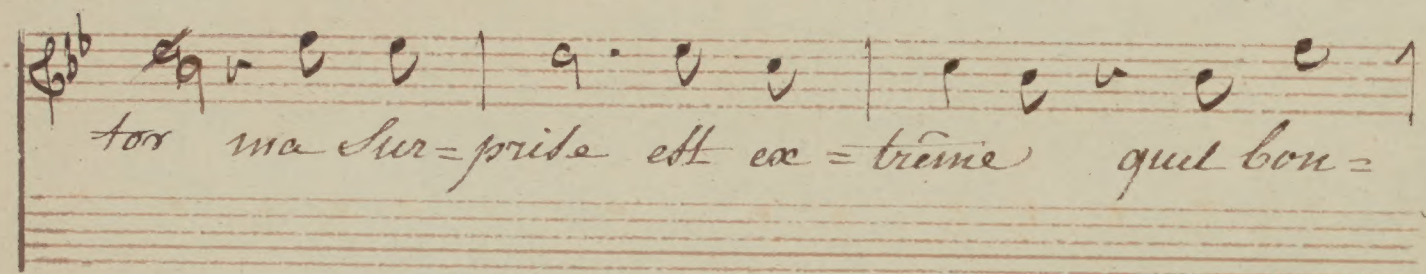 tor ma Sur=prise est ex=trême quel bon=